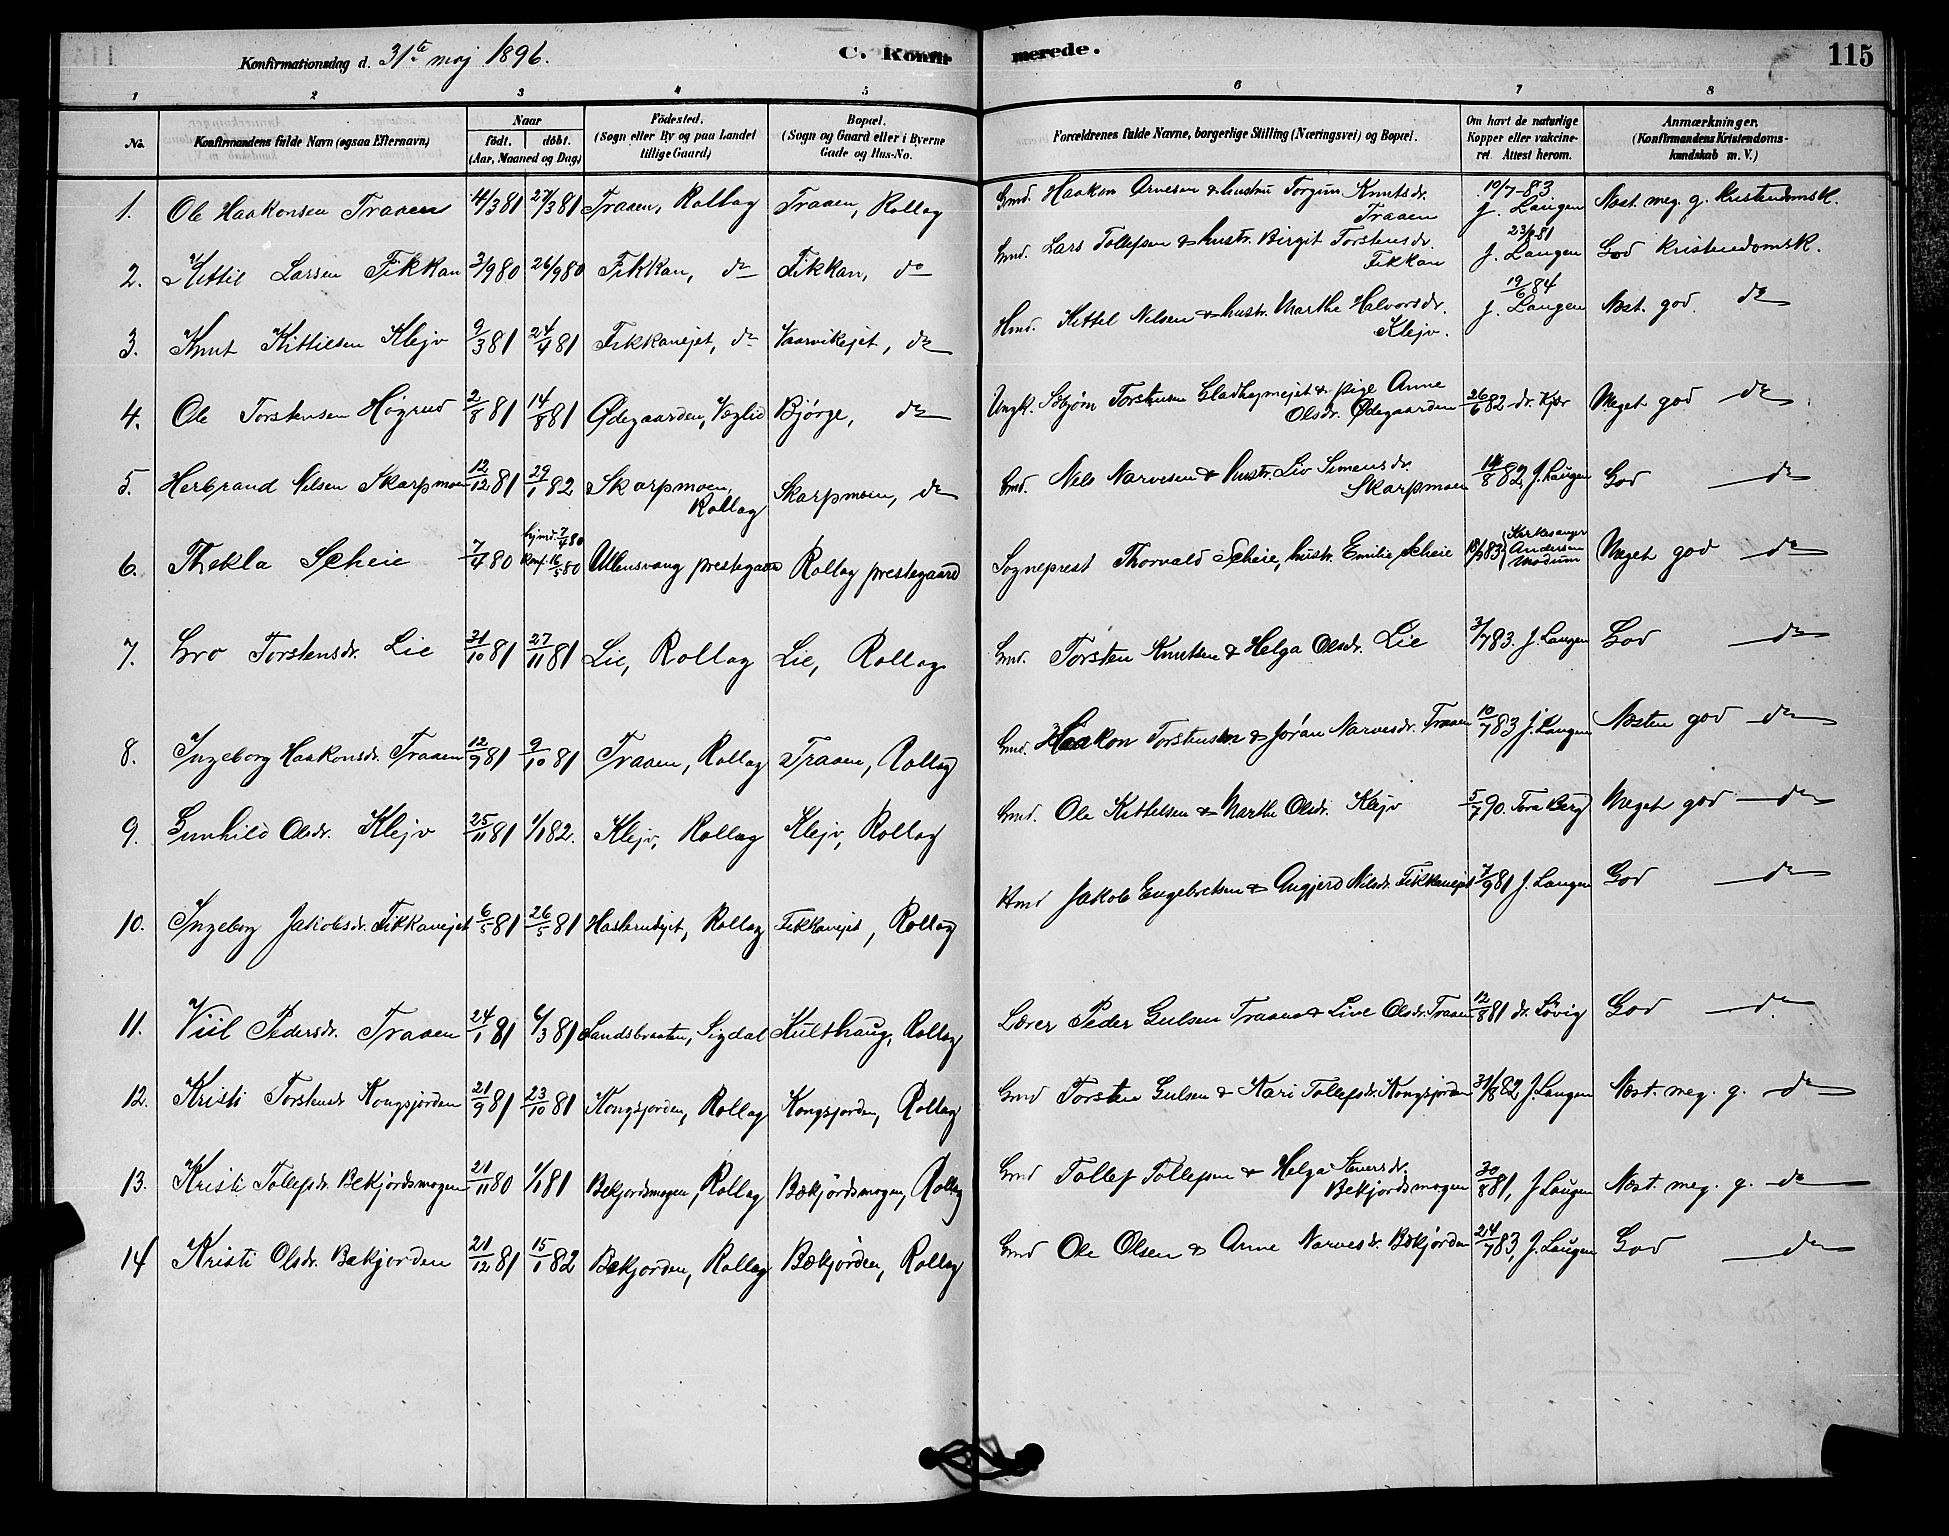 Konfirmationsdag d. 31te maj 1896.
C. Konfirmerede.
115
1 2 3 4 5 6 7 8
No.
Konfirmandens fulde Navn (ogsaa Efternavn)
Naar
födt. döbt.
(Aar, Maaned og Dag)
Födested.
(Sogn eller By og paa Landet
tillige Gaard)
Bopæl.
(Sogn og Gaard eller i Byerne
Gade og Hus-No.
Forældrenes fulde Navne, borgerlige Stilling (Næringsvei) og Bopæl.
Om havt de naturlige
Kopper eller vakcine-
ret. Attest herom.
Anmærkninger.
(Konfirmandens Kristendoms-
kundskab m. V.)
1. Ole Haakonsen Traaen 14/3 81 27/3 81 Traaen, Rollag Traaen, Rollag Gmd. Haakon Arnesen & hustru Torgun Knutsdr. Traaen 10/7-83 J. Laugen Næst. meg. g. Kristendomsk.
2. Kittil Larsen Fikkan 3/9 80 26/9 80 Fikkan, do Fikkan, do Gmd. Lars Tollefsen & hustr. Birgit Torstensdr. Fikkan J. Laugen God Kristendomsk.
3. Knut Kittilsen Klejv 9/3 81 24/4 81 Fikkanejet, do Vaarvikejet, do Hmd. Kittel Nilsen & hustr. Marthe Halvorsdr. Klejv. 19/6 84 J. Laugen Næst. god. do
4. Ole Torstensen Högrud 2/8 81 14/8 81 Ødegaarden, Veglid Bjørge, do Ungk. Torstensen & pige Anne Olsdr. Ødegaarden 26/6 82 dr. Kjær Meget god do
5. Herbrand Nilsen Skarpmoen 12/12 81 29/1 82 Skarpmoen, Rollag Skarpmoen, do Gmd. Nels Narvesen & hustr. Liv Simensdr. Skarpmoen 14/8 82, J. Laugen God do
6. Thekla Scheie 7/4 80 hjmd. 7/4 80 Konf. 16/5 80 Ullensvang prestegaard Rollag prestegaard Sogneprest Thorvald Scheie, hustr. Emilie Scheie 18/9 83 Kirkesanger Andersen Modum Meget god do
7. Gro Torstensdr. Lie 31/10 81 27/11 81 Lie, Rollag Lie, Rollag Gmd. Torsten Knutsen & Helga Olsdr. Lie 3/7 83. J. Laugen God do
8. Ingeborg Haakonsdr. Traaen 12/9 81 9/10 81 Traaen, Rollag Traaen, Rollag Gmd. Haakon Torstensen & Jøran Narvesdr. Traaen 10/7 83 J. Laugen Næsten god do
9. Gunhild Olsdr. Klejv 25/11 81 1/1 82. Klejv, Rollag Klejv, Rollag Gmd. Ole Kittelsen & Marthe Olsdr. Klejv 5/7 90. Tora Berg Meget god do
10. Ingeborg Jakobsdr. Fikkanejet 6/5 81 26/5 81 Hasterudejet, Rollag Fikkanejet, Rollag Hmd Jakob Engebretsen & Angjerd Nilsdr. Fikkanejet 7/9 81 J. Laugen God do
11. Viil Pedersdr. Traaen 24/1 81 6/3 81 Sandsbraaten, Sigdal Kulthaug, Rollag Lærer Peder Gulsen Traaen & Live Olsdr. Traaen 12/8 81 dr. Løvig God do
12. Kristi Torstensdr Kongsjorden 21/9 81 23/10 81 Kongsjorden, Rollag Kongsjorden, Rollag Gmd Torsten Gulsen & Kari Tollefsdr. Kongsjorden 31/8 82 J. Laugen Næst. meg. g. do
13. Kristi Tollefsdr. Bekjordsmogen 21/11 80 1/1 81 Bekjordsmogen, Rollag Bækjördsmogen, Rollag Gmd Tollef Tollefsen & Helga Steversdr. Bekjordsmogen 30/8 81, J Laugen Næst. meg. g. do
14 Kristi Olsdr. Bækjorden 21/12 81 15/1 82 Bækjorden, Rollag Bækjörden, Rollag Gmd Ole Olsen & Anne Narvesdr. Bækjørden 24/7 83, J. Laugen God do